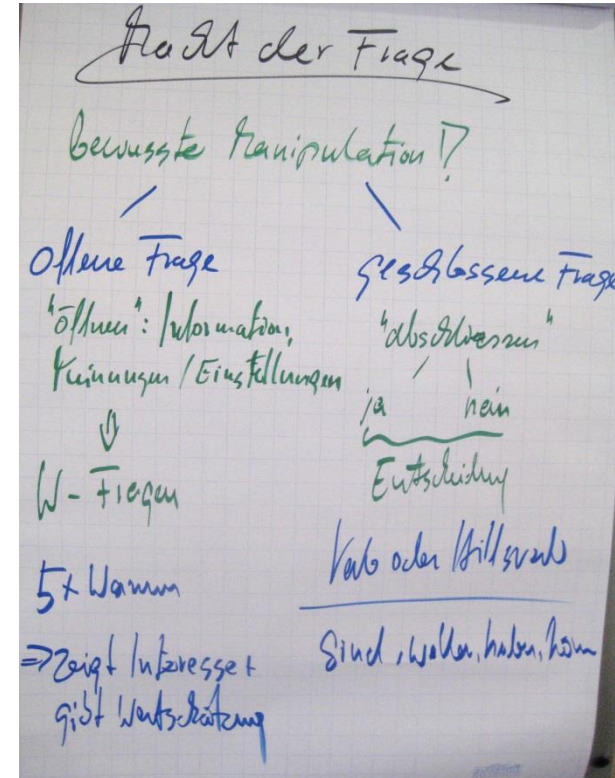 Macht der Frage
bewusste Manipulation!?
Offene Frage
"öffnen": Information,
Meinungen / Einstellungen
⇓
W-Fragen
5x Warum
⇒ zeigt Interesse +
gibt Wertschätzung
geschlossene Frage
"abschliessen"
ja nein
Entscheidung
Verb oder Hilfsverb
Sind, wollen, haben,